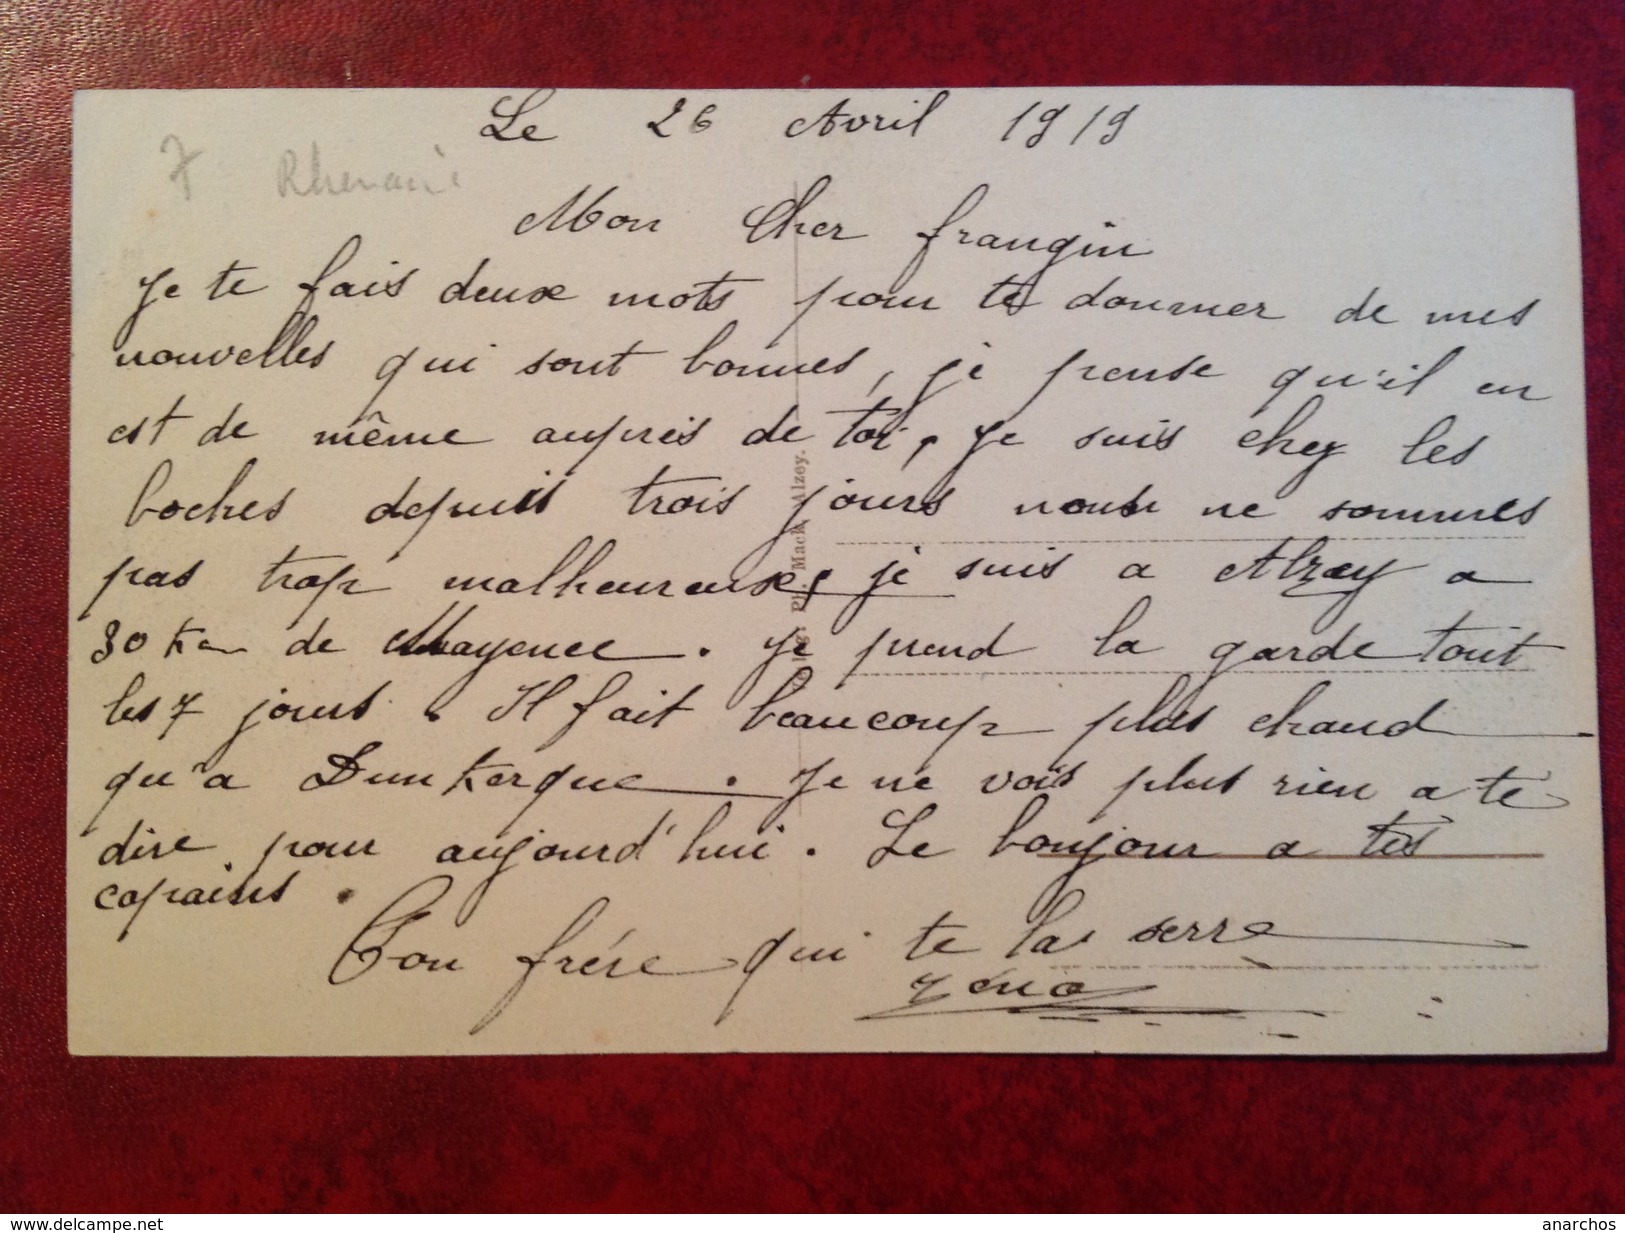 Le 26 Avril 1919
7 Rhenani
Mon Cher frangin
Je te fais deux mots pour te donner de mes
nouvelles qui sont bonnes, je pense qu'il en
est de même auprés de toi, Je suis chez les
boches depuis trois jours nous ne sommes
pas trop malheureuse, je suis a Alzey a
30 Km de Mayence. Je prend la garde tout
les 7 jours. Il fait beaucoup plus chaud
qu'a Dunkerque. Je ne vois plus rien a te
dire pour aujourd'hui. Le bonjour a tes
copains.
Ton frére qui te la serre
Verlag: Ph. Mack, Alzey.
www.delcampe.net
anarchos